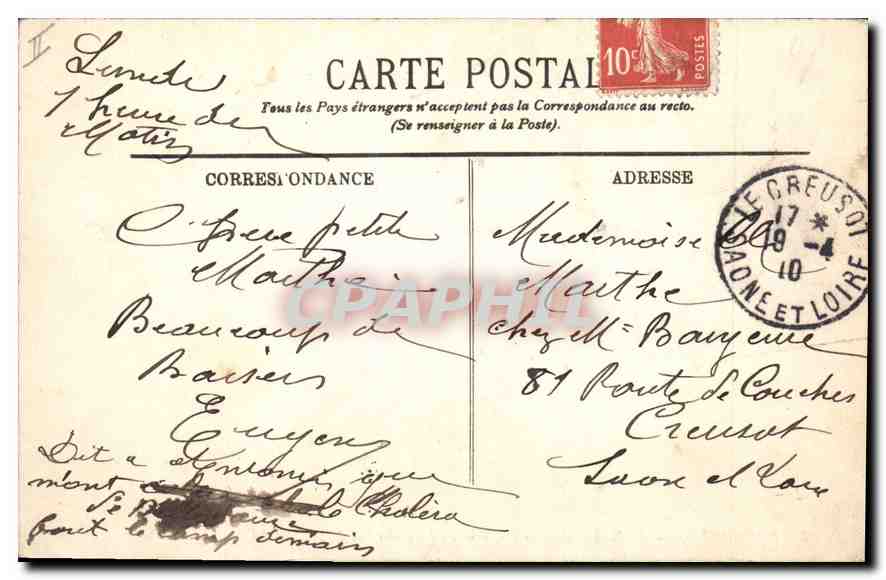 II
1 heure du
Matin
CARTE POSTAL
10c
POSTES
Tous les Pays étrangers n'acceptent pas la Correspondance au recto.
(Se renseigner à la Poste).
CORRESPONDANCE
Chère petite
Marthe
Beaucoup de
Baisers
Eugène
Dit a Antonin que
m'ont le Choléra
font le camp demain
ADRESSE
Mademoiselle
Marthe
chez Mme
81 Route de Couches
Creusot
Saone et Loire
LE CREUSOT
17 *
19 -4
10
SAONE ET LOIRE
CPAPHIL